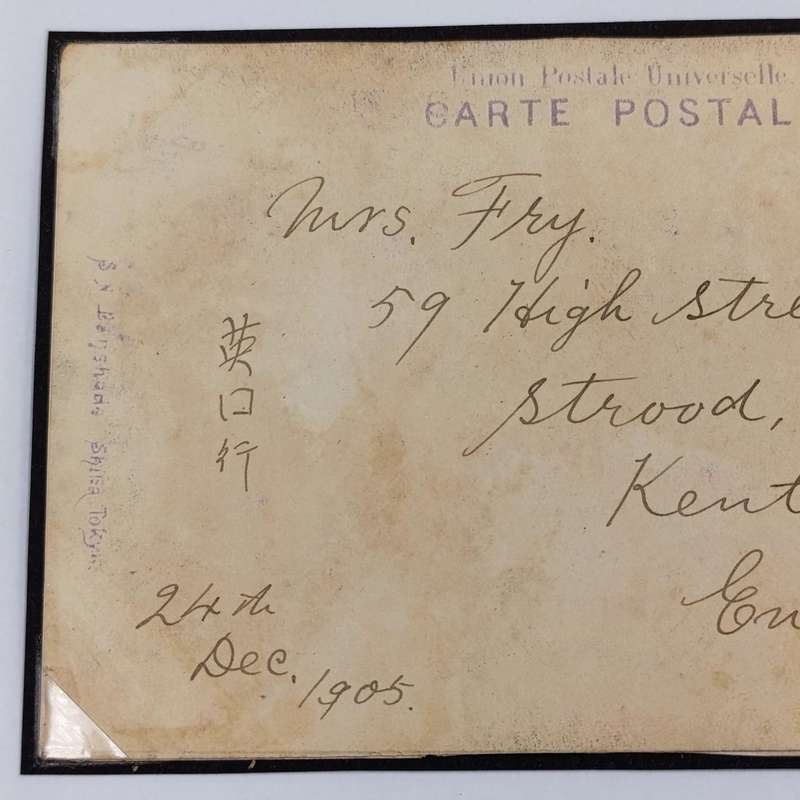 Union Postale Universelle.
CARTE POSTAL
Mrs. Fry.
59 High Stre
Strood,
Kent
En
英
口
行
24th
Dec. 1905.
Shiba Tokyo.